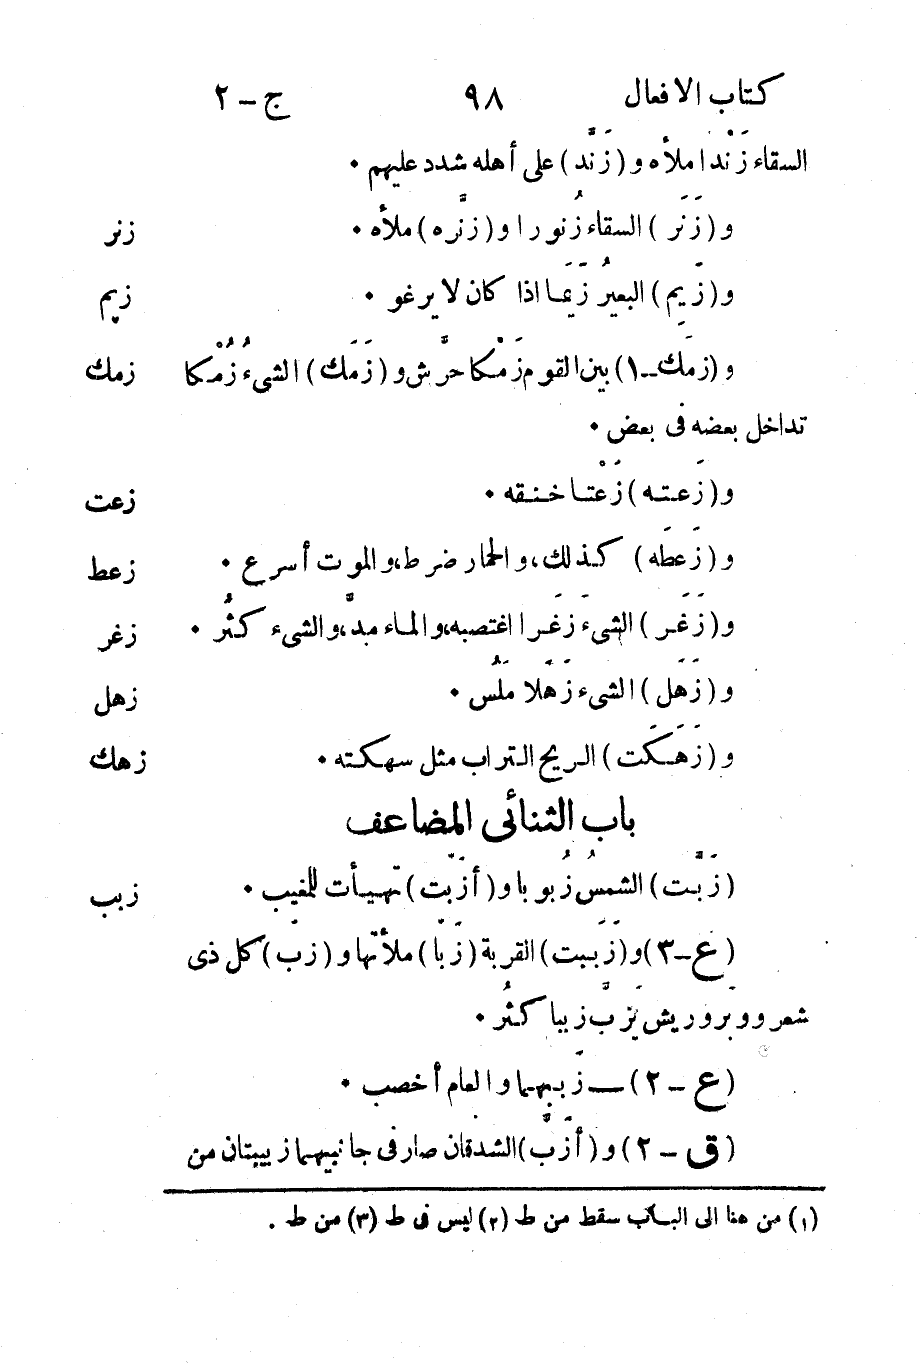 كتاب الافعال ٩٨ ج – ٢
السقاء زَنْدا ملأه و (زَنَّد) على أهله شدد عليهم ٠
و (زَنَر) السقاء زُنورا و (زنَّره) ملأه ٠ زنر
و (زَيِم) البعيرُ زَيَما اذا كان لا يرغو ٠ زيم
و (زمَك ــ ١) بين القوم زَمْكا حرَّش و (زَمَك) الشىءُ زُمُكا زمك
تداخل بعضه فى بعض ٠
و (زَعته) زَعْتا خنقه ٠ زعت
و (زَعَطه) كذلك، و الحمار ضرط، و الموت أسرع ٠ زعط
و (زَغَر) الشىءَ زَغَرا اغتصبه، و الماء مدَّ، و الشىء كثُر ٠ زغر
و (زَهَل) الشىء زَهَلا ملُس ٠ زهل
و (زَهَكَت) الريح التراب مثل سهكته ٠ زهك
باب الثنائى المضاعف
(زَبَّت) الشمسُ زُبوبا و (أزَبّت) تهيأت للمغيب ٠ زبب
(ع – ٣) و (زَبَبت) القربة (زَبّا) ملأتها و (زبّ) كل ذى
شعر ووبر وريش يَزَبّ زببا كثُر ٠
(ع – ٢) ــ زَبهما و العام أخصب ٠
(ق – ٢) و (أزَبَّ) الشدقان صار فى جانبيهما زبيبتان من
(١) من هنا الى الباب سقط من ط (٢) ليس فى ط (٣) من ط .